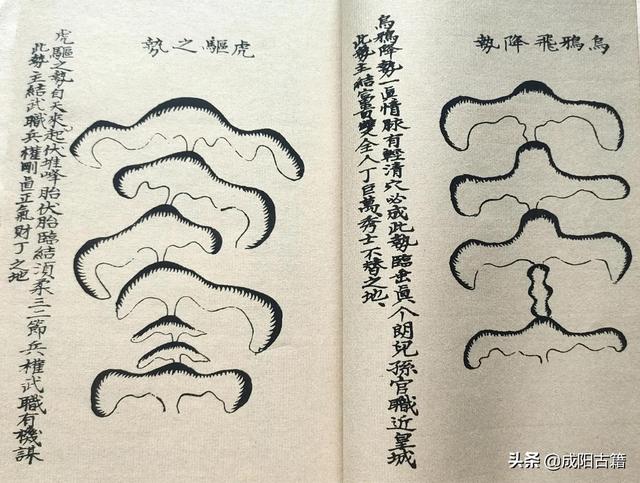 烏鴉飛降勢
烏鴉降勢一眞情脉有輕清穴必成此勢臨垂眞个朗兒孫官職近皇城
此勢主結富貴雙全人丁巨萬秀士不替之地、
虎驅之勢
虎驅之勢自天來起伏堆峰胎伏胎臨結湏柔三二節兵權武職有機謀
此勢主結武職兵權剛直正氣財丁之地
头条 @成阳古籍